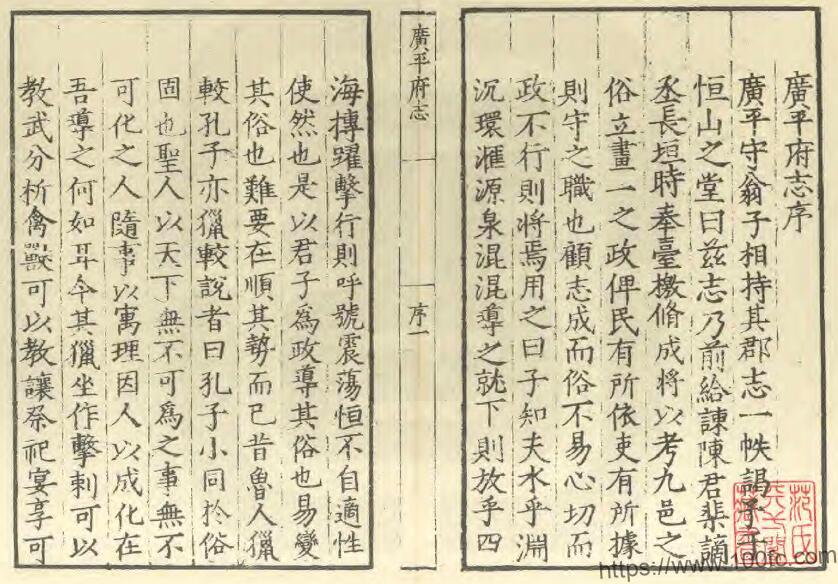 廣平府志序
廣平守翁子相持其郡志一帙謁予于
恒山之堂曰兹志乃前給諫陳君棐謫
丞長垣時奉臺檄脩成將以考九邑之
俗立畫一之政俾民有所依吏有所據
則守之職也顧志成而俗不易心切而
政不行則將焉用之曰子知夫水乎淵
沉環滙源泉混混導之就下則放乎四
廣平府志
序一
海摶躍擊行則呼號震蕩恒不自適性
使然也是以君子爲政導其俗也易變
其俗也難要在順其勢而已昔魯人獵
較孔子亦獵較說者曰孔子小同於俗
固也聖人以天下無不可爲之事無不
可化之人隨事以寓理因人以成化在
吾導之何如耳今其獵坐作擊刺可以
教武分析禽獸可以教讓祭祀宴享可
范氏天一閣藏書
https://www.100fc.com